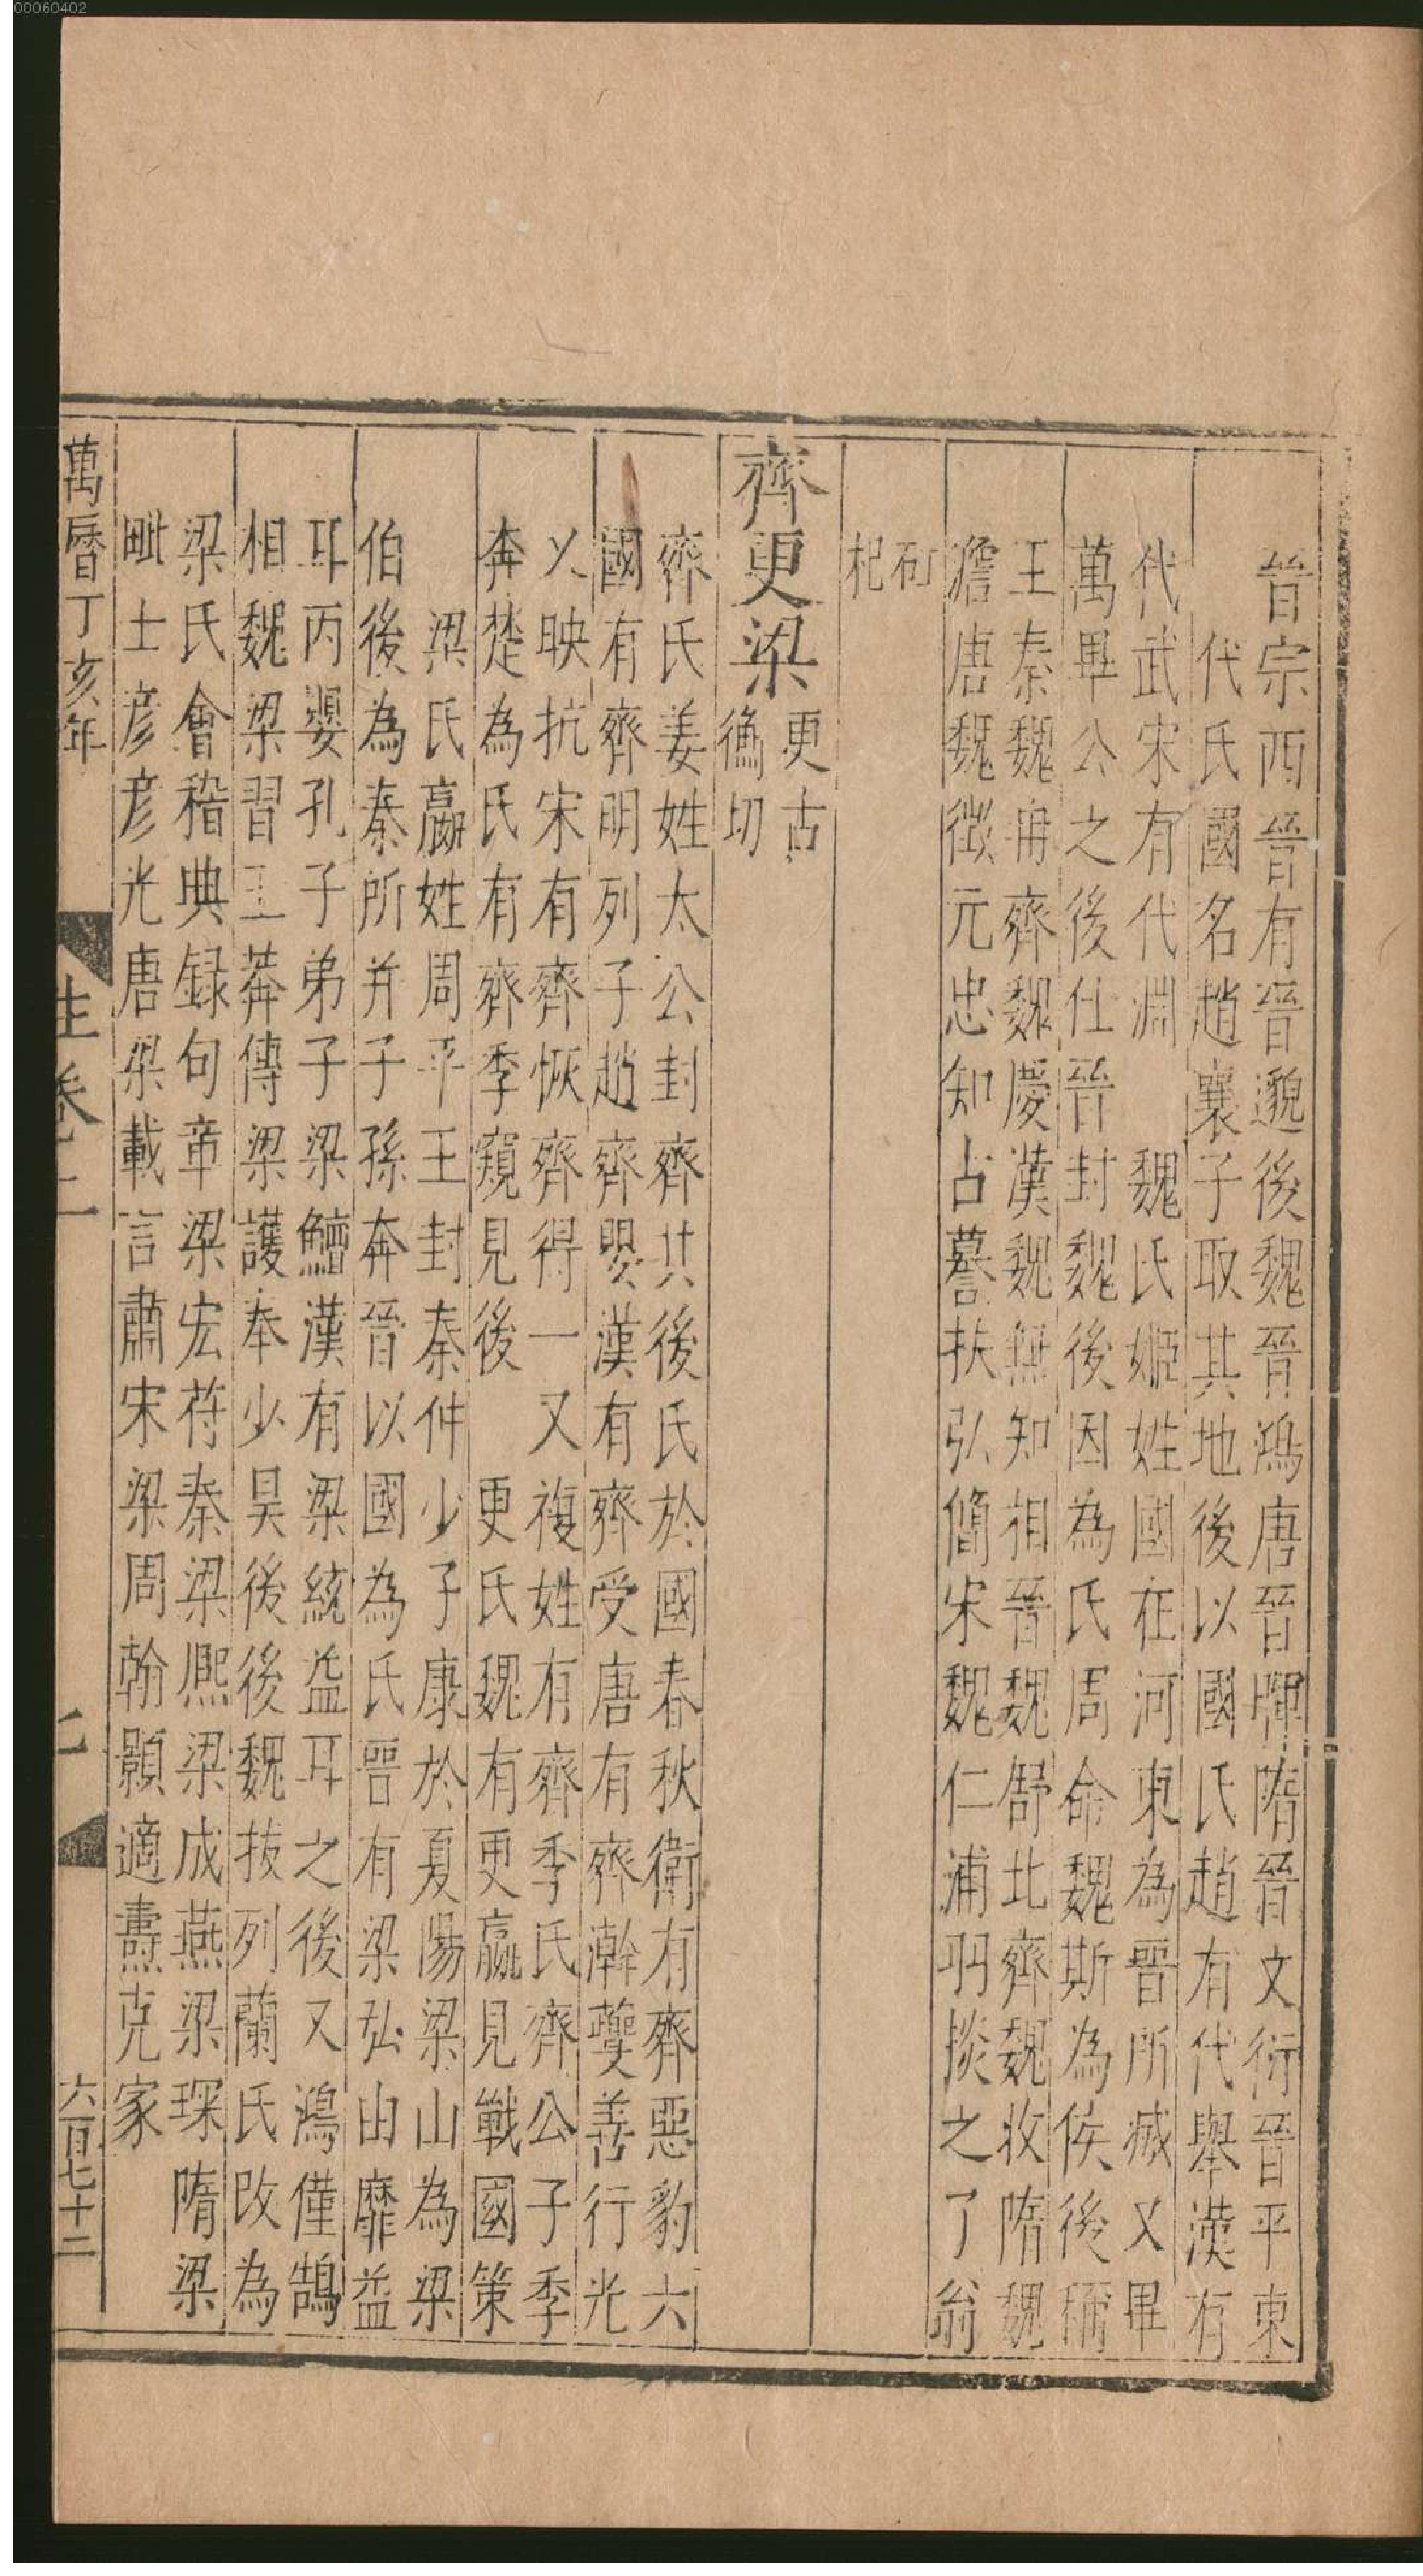 00060402
晉宗西晉有晉邈後魏晉鴻唐晉暉隋晉文衍晉平東
代氏國名趙襄子取其地後以國氏趙有代舉漢有
代武宋有代淵　魏氏姬姓國在河東為晉所滅又畢
萬畢公之後仕晉封魏後因為氏周命魏斯為侯後稱
王秦魏冉齊魏慶漢魏無知相晉魏舒北齊魏收隋魏
澹唐魏徵元忠知古謩扶弘簡宋魏仁浦羽掞之了翁
杞
齊更梁
更古
衡切
齊氏姜姓太公封齊其後氏於國春秋衛有齊惡豹六
國有齊明列子趙齊嬰漢有齊受唐有齊澣䕫善行光
乂映抗宋有齊恢齊得一　又複姓有齊季氏齊公子季
奔楚為氏有齊季窺見後　更氏魏有更羸見戰國策
梁氏嬴姓周平王封秦仲少子康於夏陽梁山為梁
伯後為秦所并子孫奔晉以國為氏晉有梁弘由靡益
耳丙嬰孔子弟子梁鱣漢有梁統益耳之後又鴻僅鵠
相魏梁習王莽傳梁護奉少昊後後魏拔列蘭氏改為
梁氏會稽典録句章梁宏苻秦梁熙梁成燕梁琛隋梁
毗士彥彥光唐梁載言肅宋梁周翰顥適燾克家
萬曆丁亥年
生卷之二
七
六百七十二